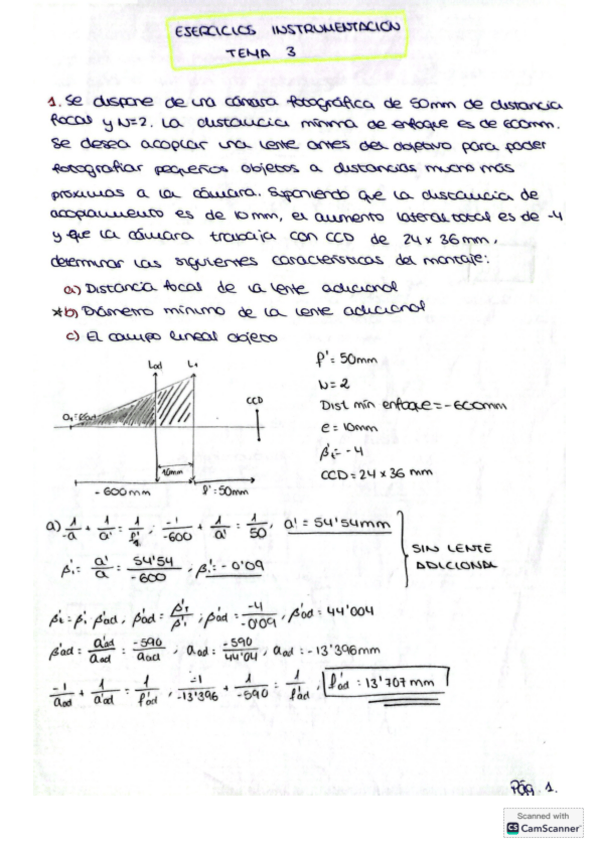 EJERCICIOS INSTRUMENTACION
TEMA 3
1. Se dispone de una cámara fotográfica de 50mm de distancia
focal y N=2. La distancia mínima de enfoque es de 600mm.
Se desea acoplar una lente antes del objetivo para poder
fotografiar pequeños objetos a distancias mucho más
próximas a la cámara. Suponiendo que la distancia de
acoplamiento es de 10mm, el aumento lateral total es de -4
y que la cámara trabaja con CCD de 24 x 36 mm,
determinar las siguientes características del montaje:
a) Distancia focal de la lente adicional
*b) Diámetro mínimo de la lente adicional
c) El campo lineal objeto
Lad L1
CCD
10mm
-600mm f':50mm
f': 50mm
N = 2
Dist min enfoque = -600mm
e = 10mm
β't: -4
CCD = 24 x 36 mm
a) 1/-a + 1/a' = 1/f'1 ; -1/-600 + 1/a' = 1/50, a' = 54'54mm
β'1 = a'/a = 54'54/-600 ; β'1 = -0'09
SIN LENTE
ADICIONAL
β't = β'1 · β'ad , β'ad = β't/β'1 ; β'ad = -4/-0'09 , β'ad = 44'004
β'ad = a'ad/aad = -590/aad , aad = -590/44'04 , aad = -13'396mm
-1/aad + 1/a'ad = 1/f'ad , -1/-13'396 + 1/-590 = 1/f'ad , f'ad = 13'707 mm
Pág. 1.
Scanned with
CS CamScanner